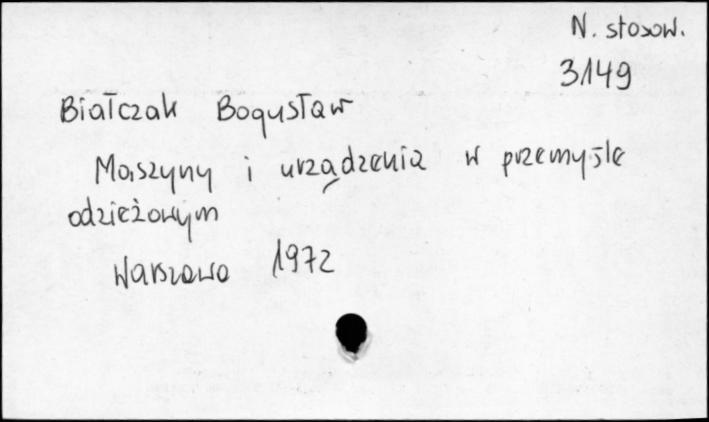 N. stosow.
3149
Białczak Bogusław
Maszyny i urządzenia w przemyśle
odzieżowym
Warszawa 1972